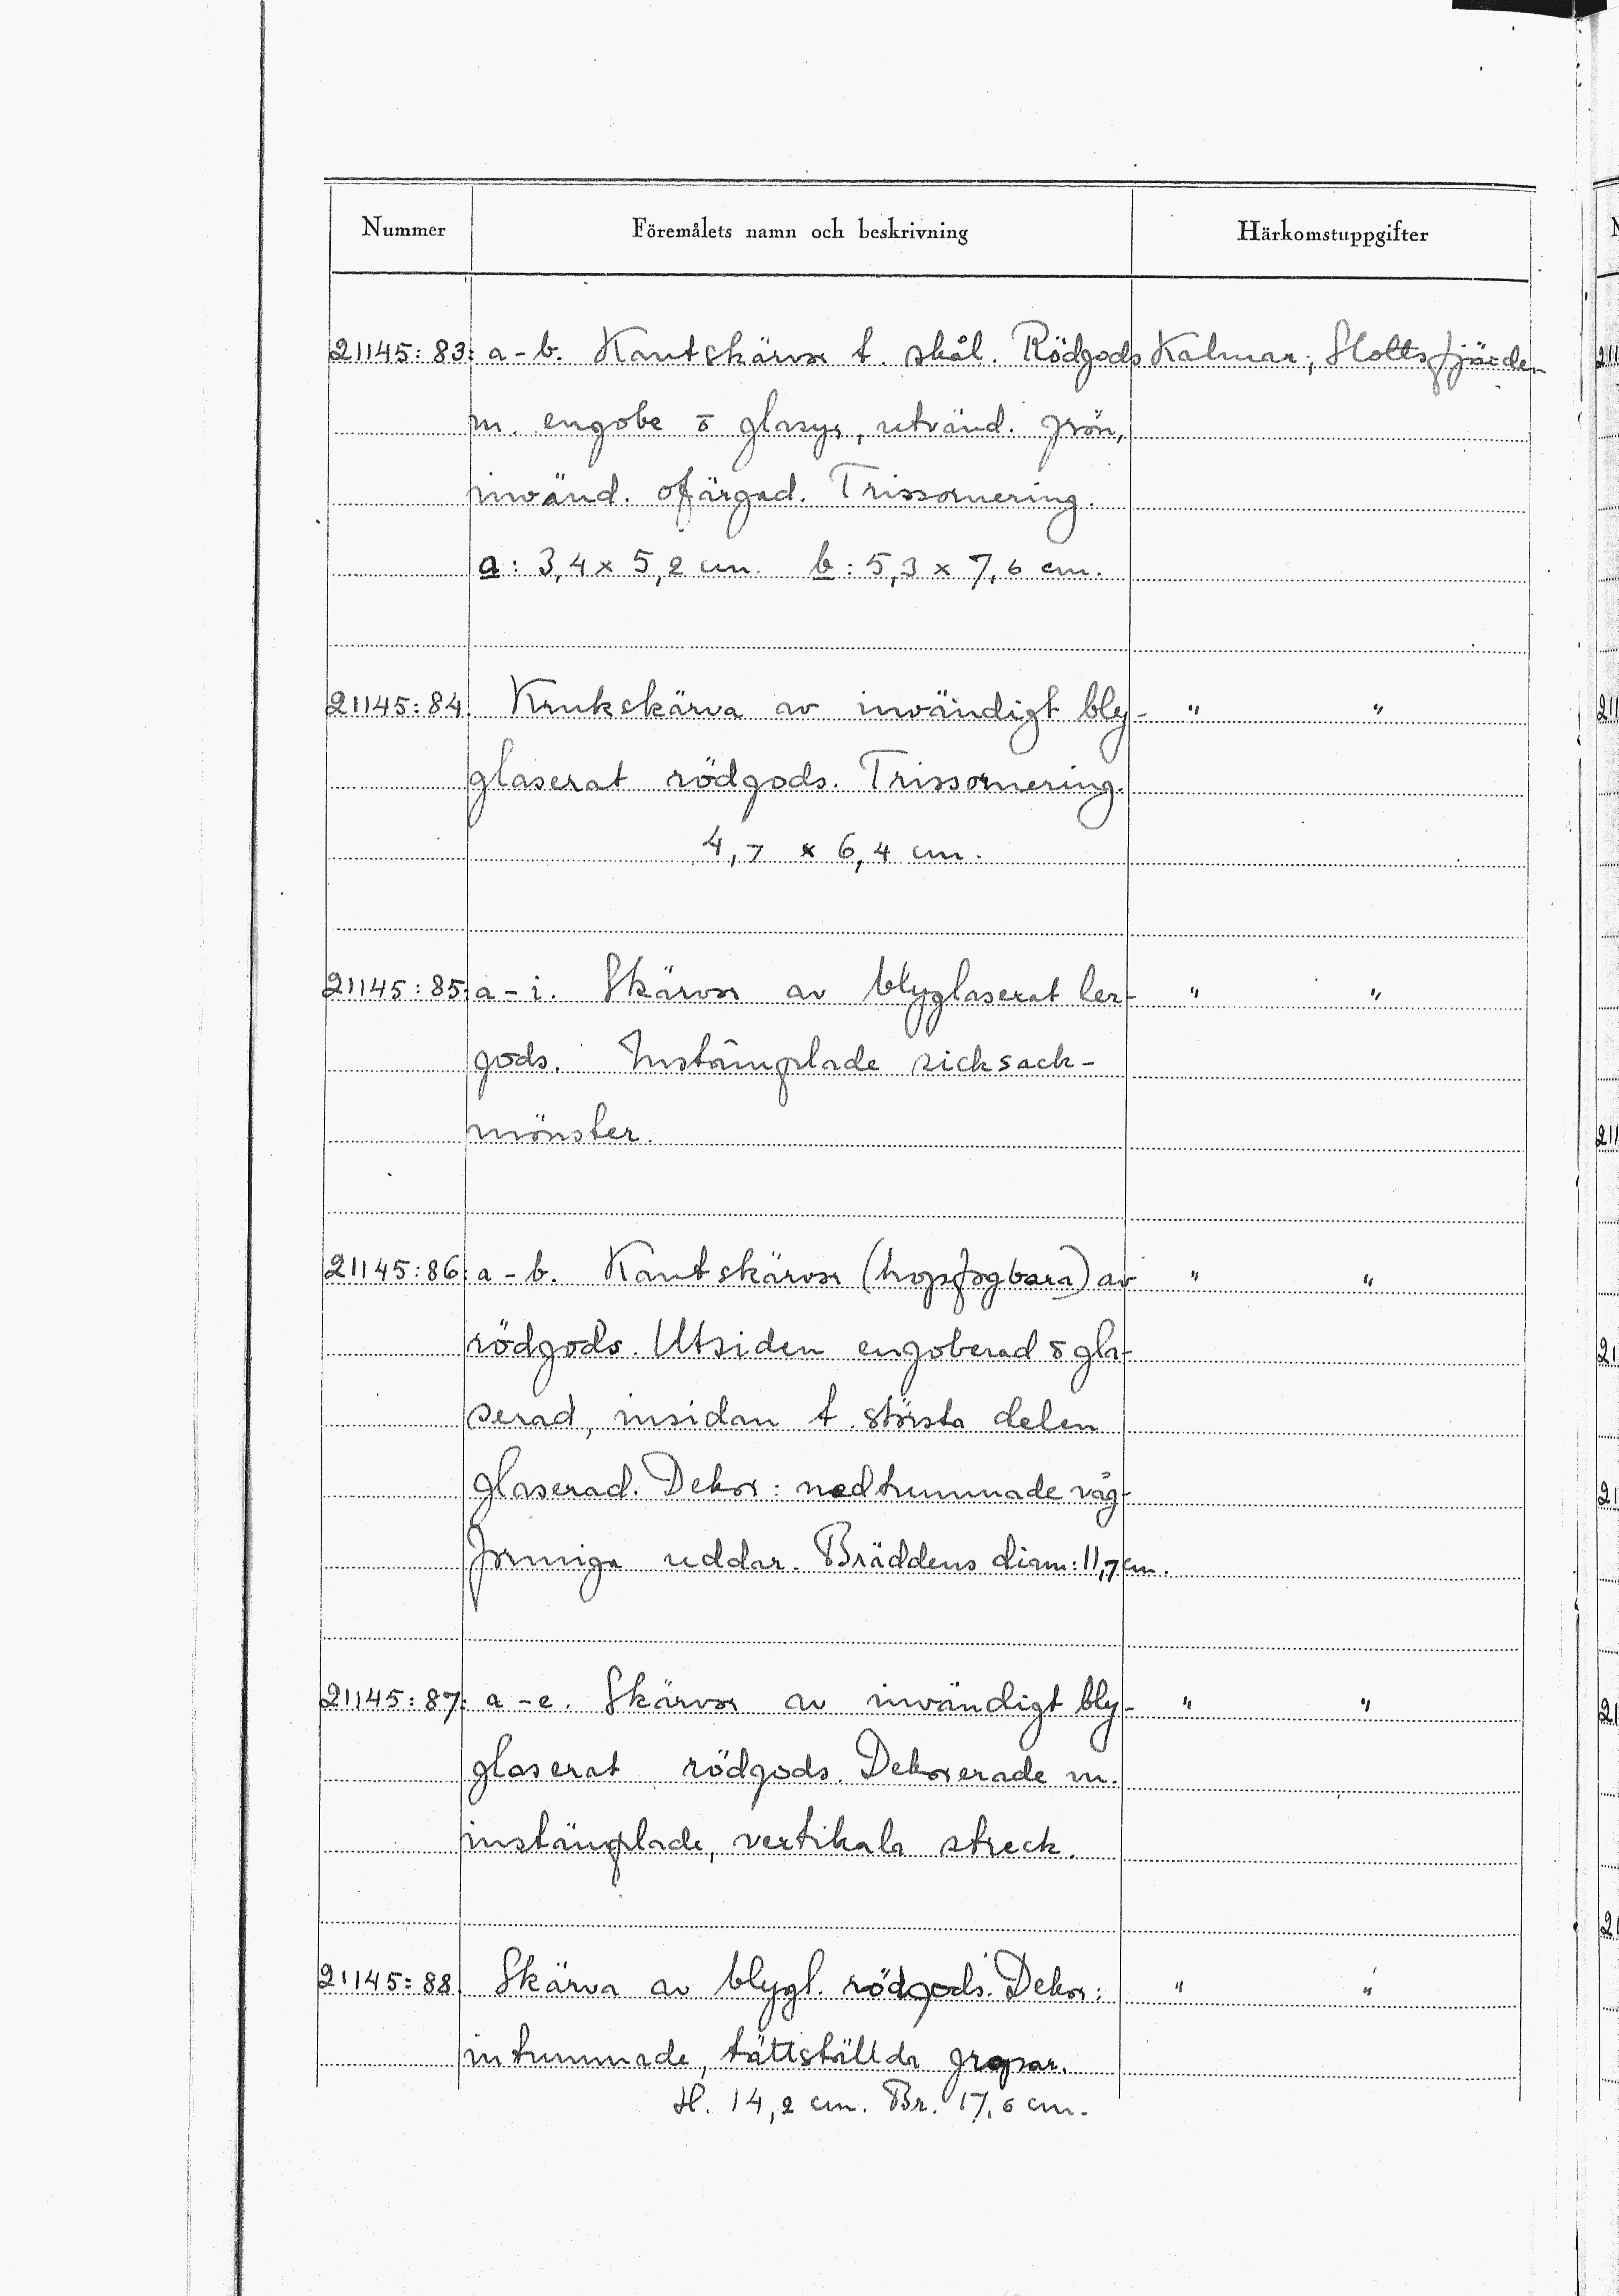 Nummer Föremålets namn och beskrivning Härkomstuppgifter
21145:83: a-b. Kantskärvor t. skål. Rödgods Kalmar, Slottsfjärden
m. engobe o glasyr, utvänd. grön,
invänd. ofärgad. Trissornering.
a: 3,4 x 5,2 cm. b: 5,3 x 7,6 cm.
21145:84. Krukskärva av invändigt bly- " "
glaserat rödgods. Trissornering.
4,7 x 6,4 cm.
21145:85: a-i. Skärvor av blyglaserat ler- " "
gods. Instämplade sicksack-
mönster.
21145:86: a-b. Kantskärvor (hopfogbara) av " "
rödgods. Utsiden engoberad o gla-
serad, insidan t. största delen
glaserad. Dekor: nedtummade våg-
formiga uddar. Bräddens diam: 11,7 cm.
21145:87: a-e. Skärvor av invändigt bly- " "
glaserat rödgods. Dekorerade m.
instämplade, vertikala streck.
21145:88. Skärva av blygl. rödgods. Dekor: " "
intummade, tättställda gropar.
H. 14,2 cm. Br. 17,6 cm.